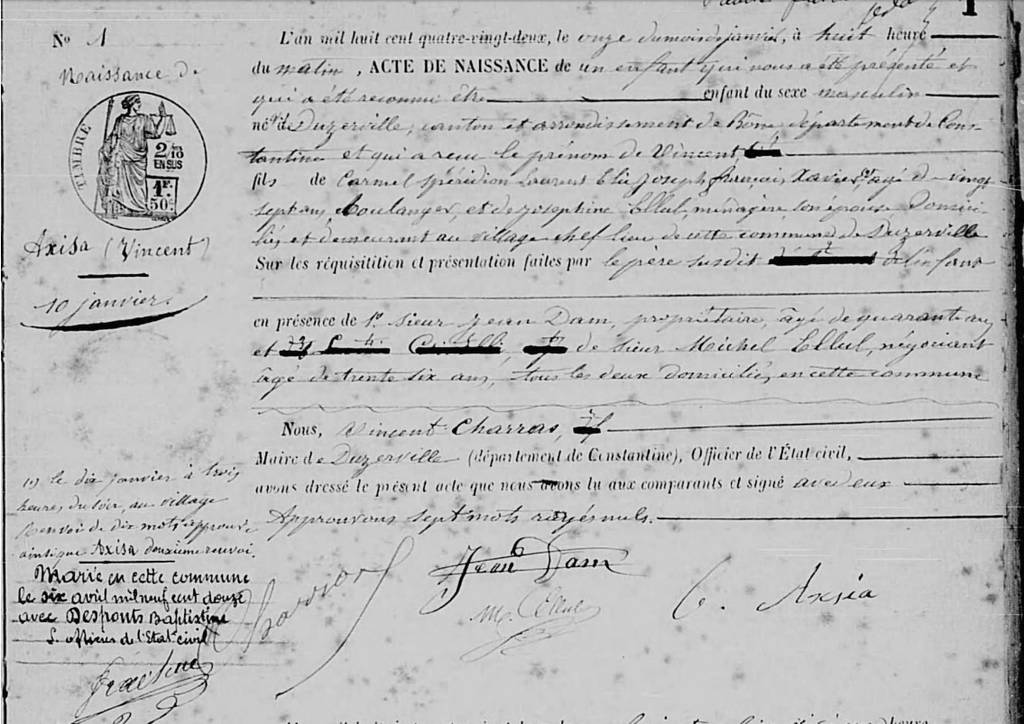 1
N° 1
Naissance de
TIMBRE
2/10
EN SUS
1F.
50c.
Axisa (Vincent)
10 janvier.
L'an mil huit cent quatre-vingt-deux, le onze du mois de janvier, à huit heure
du matin, ACTE DE NAISSANCE de un enfant qui nous a été présenté et
qui a été reconnu être enfant du sexe masculin
né à Duzerville, canton et arrondissement de Bône département de Cons-
tantine et qui a recu le prénom de Vincent
fils de Carmel Spéridion Laurent Elie Joseph français Xavier agé de vingt
sept ans, Boulanger, et de Josephine Ellul, ménagère son épouse Domici-
liés et demeurant au village chef lieu de cette commune de Duzerville
Sur les réquisitition et présentation faites par le père susdit de l'enfant
en présence de 1° sieur Jean Dam, propriétaire, âgé de quarante ans
et de sieur Michel Ellul, négociant
âgé de trente six ans, tous les deux domiciliés en cette commune
Nous, Vincent Charras,
Maire de Duzerville (département de Constantine), Officier de l'État civil,
avons dressé le présent acte que nous avons lu aux comparants et signé avec eux
Approuvons sept mots rayés nuls.
(1) le dix janvier à trois
heures du soir, au village
Renvoi de dix mots approuvé
ainsi que Axisa deuxième renvoi.
Marié en cette commune
le six avril mil neuf cent douze
avec Desponts Baptistine
L'officier de l'Etat civil
Charras
Jean Dam
M. Ellul
C. Axsia